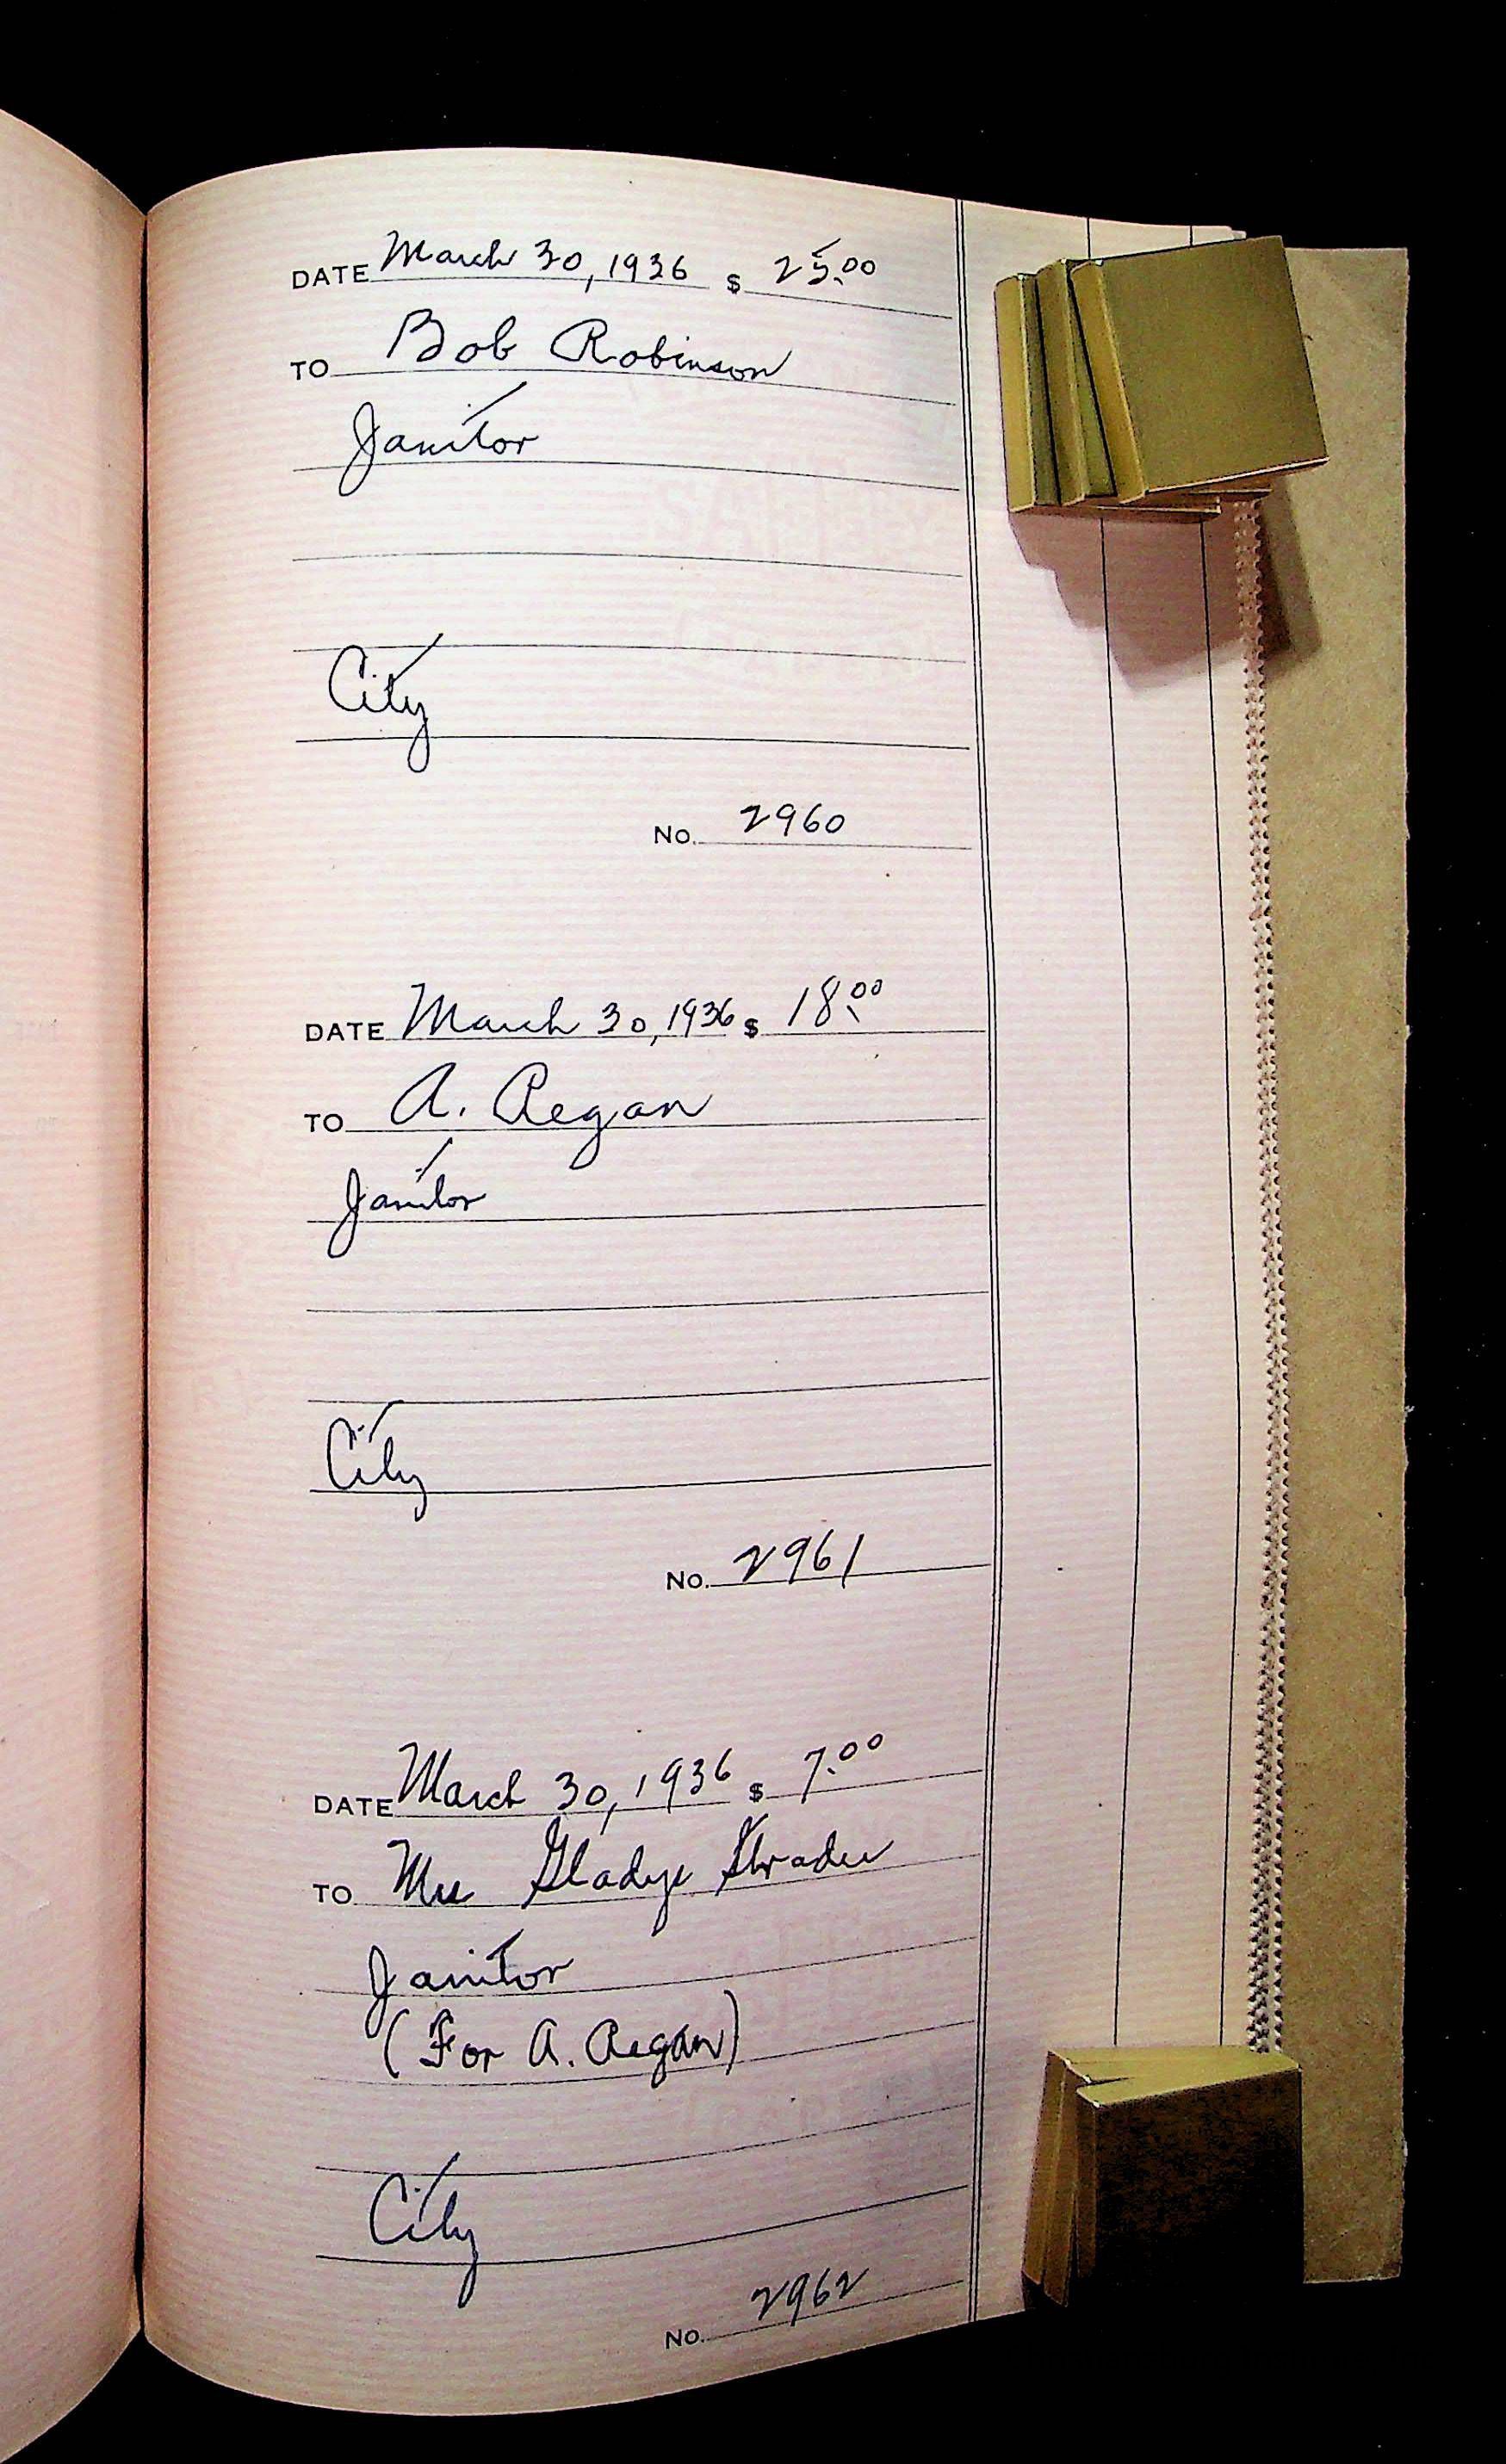 DATE March 30, 1936 $ 25.00
TO Bob Robinson
Janitor
City
No. 2960
DATE March 30, 1936 $ 18.00
TO A. Regan
Janitor
City
No. 2961
DATE March 30, 1936 $ 7.00
TO Mrs Gladys Shrader
Janitor
(For A. Regan)
City
No. 2962